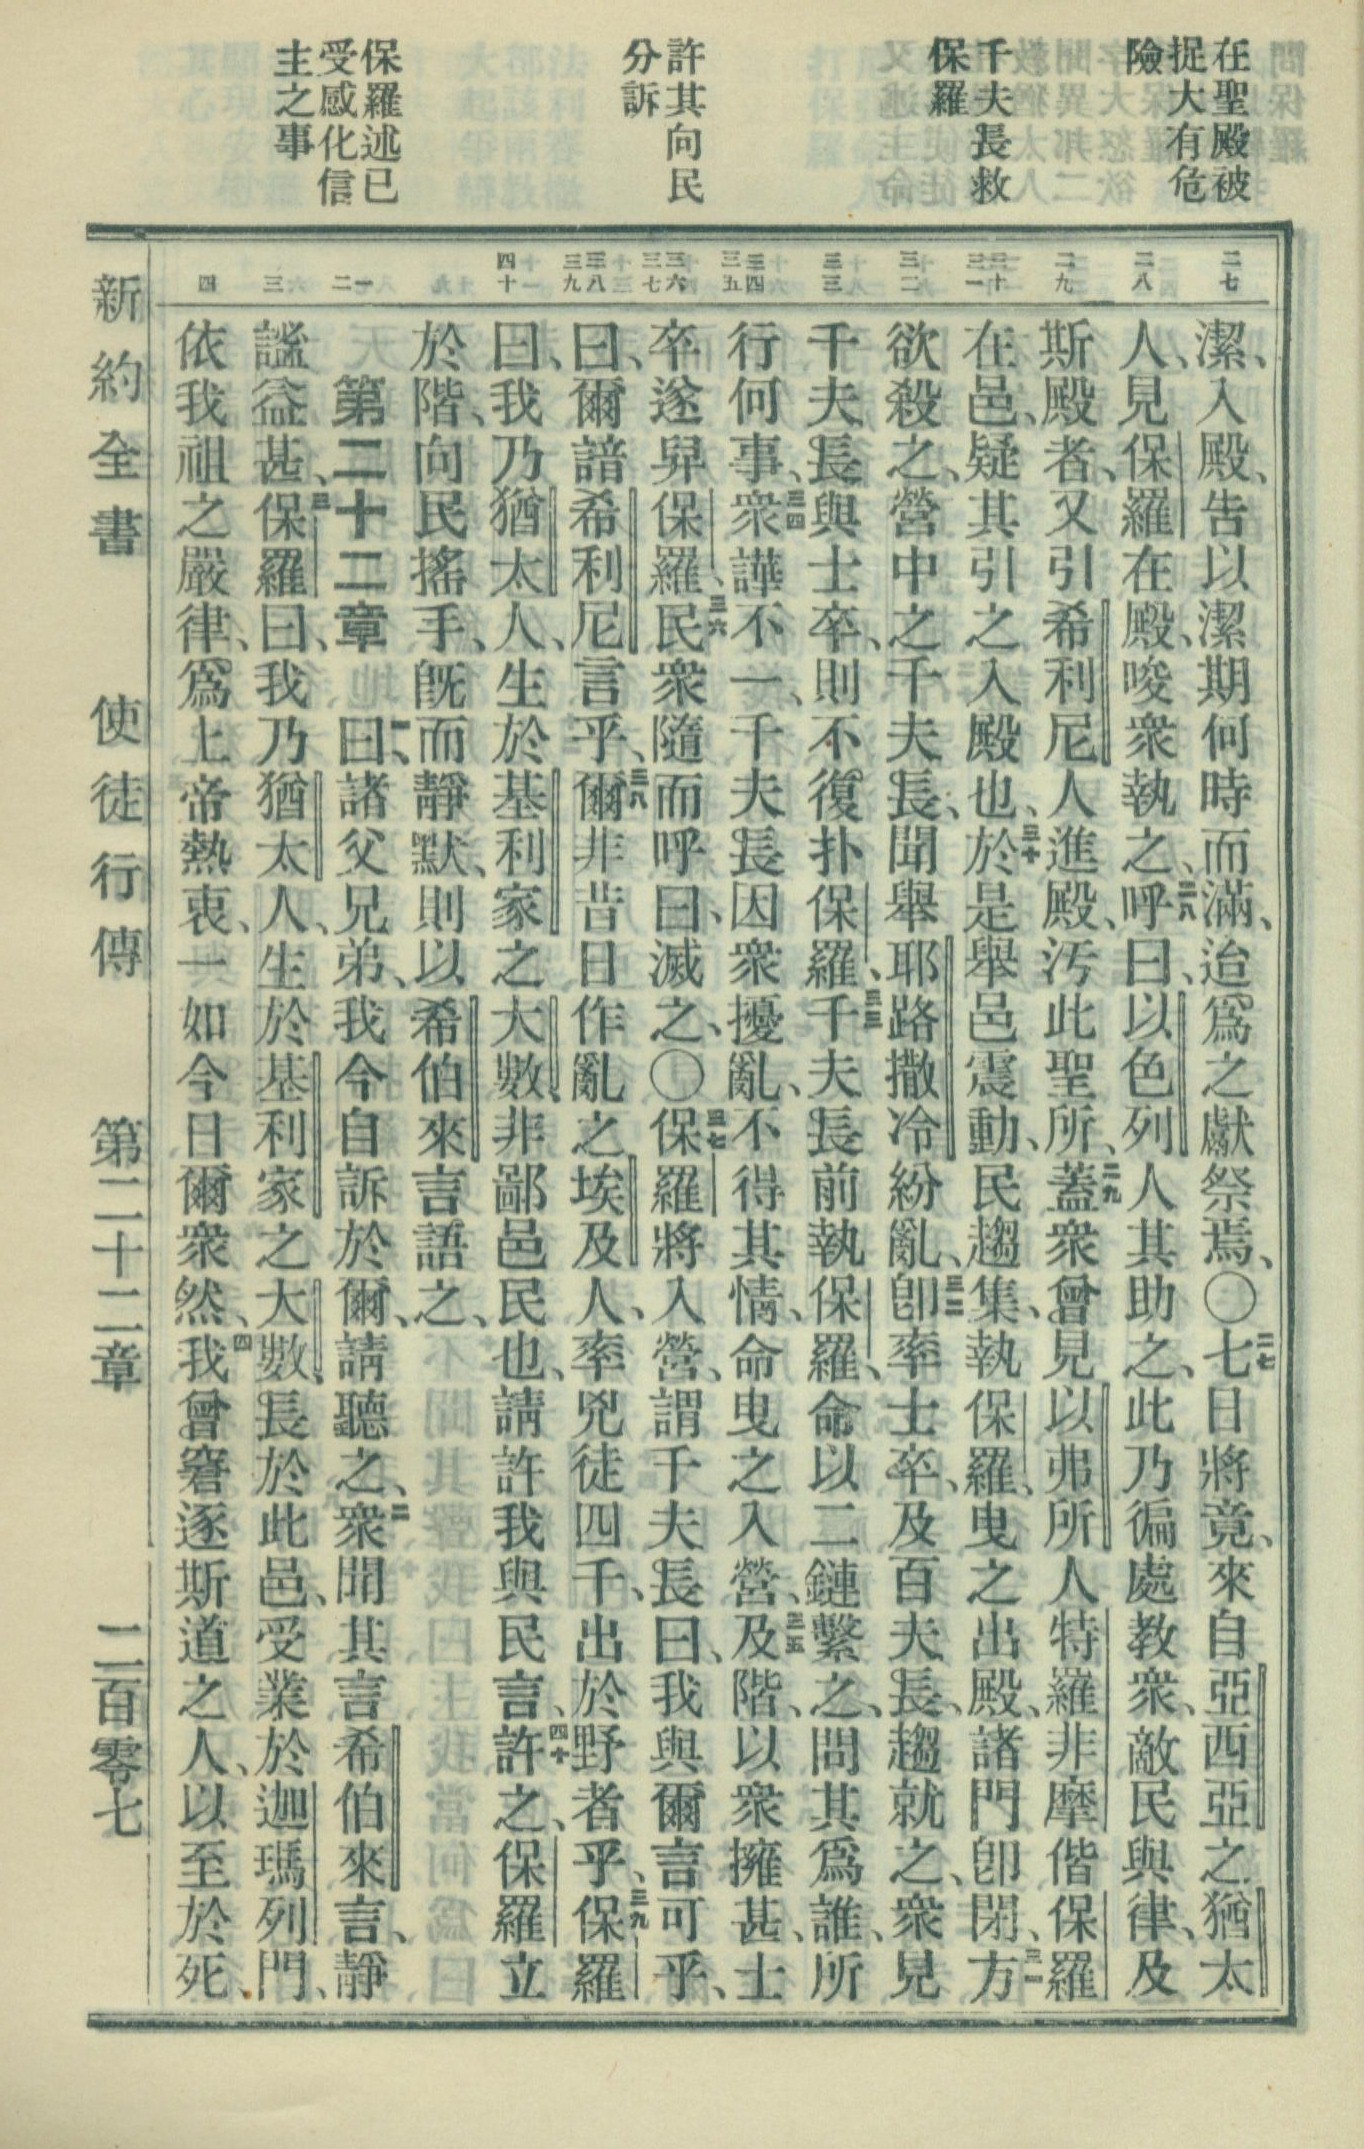 在聖殿被
捉大有危
險
千夫長救
保羅
許其向民
分訴
保羅述己
受感化信
主之事
二七
二八
二九
三十
三一
三二
三三
三四
三五
三六
三七
三八
三九
四十
一
二
三
四
潔、入殿、告以潔期何時而滿、迨爲之獻祭焉、〇二七七日將竟、來自亞西亞之猶太
人、見保羅在殿、唆衆執之、二八呼曰、以色列人其助之、此乃徧處教衆、敵民與律、及
斯殿者、又引希利尼人進殿、汚此聖所、二九蓋衆曾見以弗所人特羅非摩偕保羅
在邑、疑其引之入殿也、三十於是舉邑震動、民趨集、執保羅、曳之出殿、諸門卽閉、三一方
欲殺之、營中之千夫長、聞舉耶路撒冷紛亂、三二卽率士卒、及百夫長、趨就之、衆見
千夫長與士卒、則不復扑保羅、三三千夫長前執保羅、命以二鏈繫之、問其爲誰、所
行何事、三四衆譁不一、千夫長因衆擾亂、不得其情、命曳之入營、三五及階、以衆擁甚、士
卒遂舁保羅、三六民衆隨而呼曰、滅之、〇三七保羅將入營、謂千夫長曰、我與爾言可乎、
曰、爾諳希利尼言乎、三八爾非昔日作亂之埃及人、率兇徒四千、出於野者乎、三九保羅
曰、我乃猶太人、生於基利家之大數、非鄙邑民也、請許我與民言、四十許之、保羅立
於階、向民搖手、旣而靜默、則以希伯來言語之、
第二十二章 一曰、諸父兄弟、我今自訴於爾、請聽之、二衆聞其言希伯來言、靜
謐益甚、三保羅曰、我乃猶太人、生於基利家之大數、長於此邑、受業於迦瑪列門、
依我祖之嚴律、爲上帝熱衷、一如今日爾衆然、四我曾窘逐斯道之人、以至於死、
新約全書 使徒行傳 第二十二章 二百零七